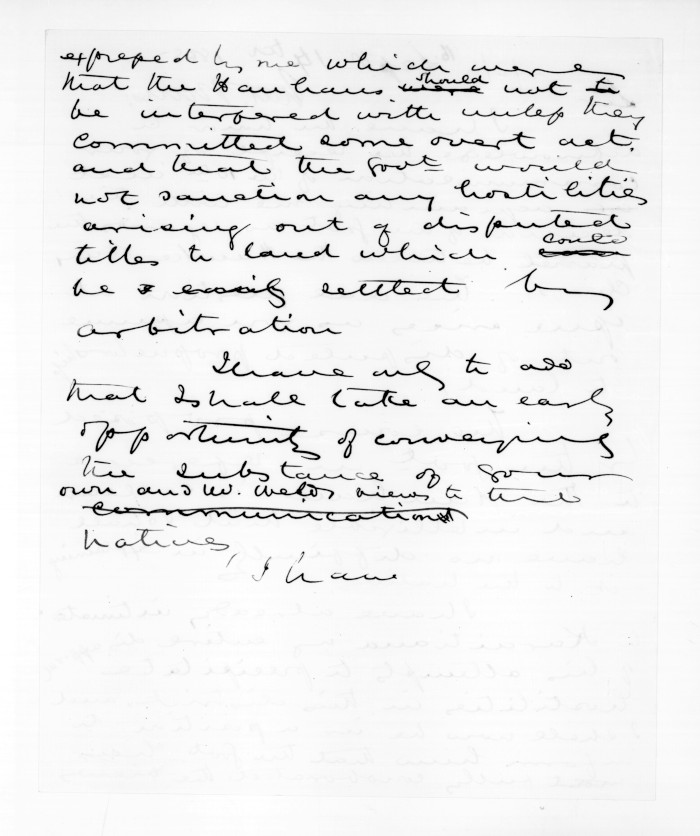 expressed by me which were
that the Hauhaus were should not to
be interfered with unless they
committed some overt act.
and that the Govt would
not sanction any hostilities
arising out of disputed
titles to land which could
be easily settled by
arbitration
I have only to add
that I shall take an early
opportunity of conveying
the substance of your
own and Mr. Welds views to the
communication
Natives
I have